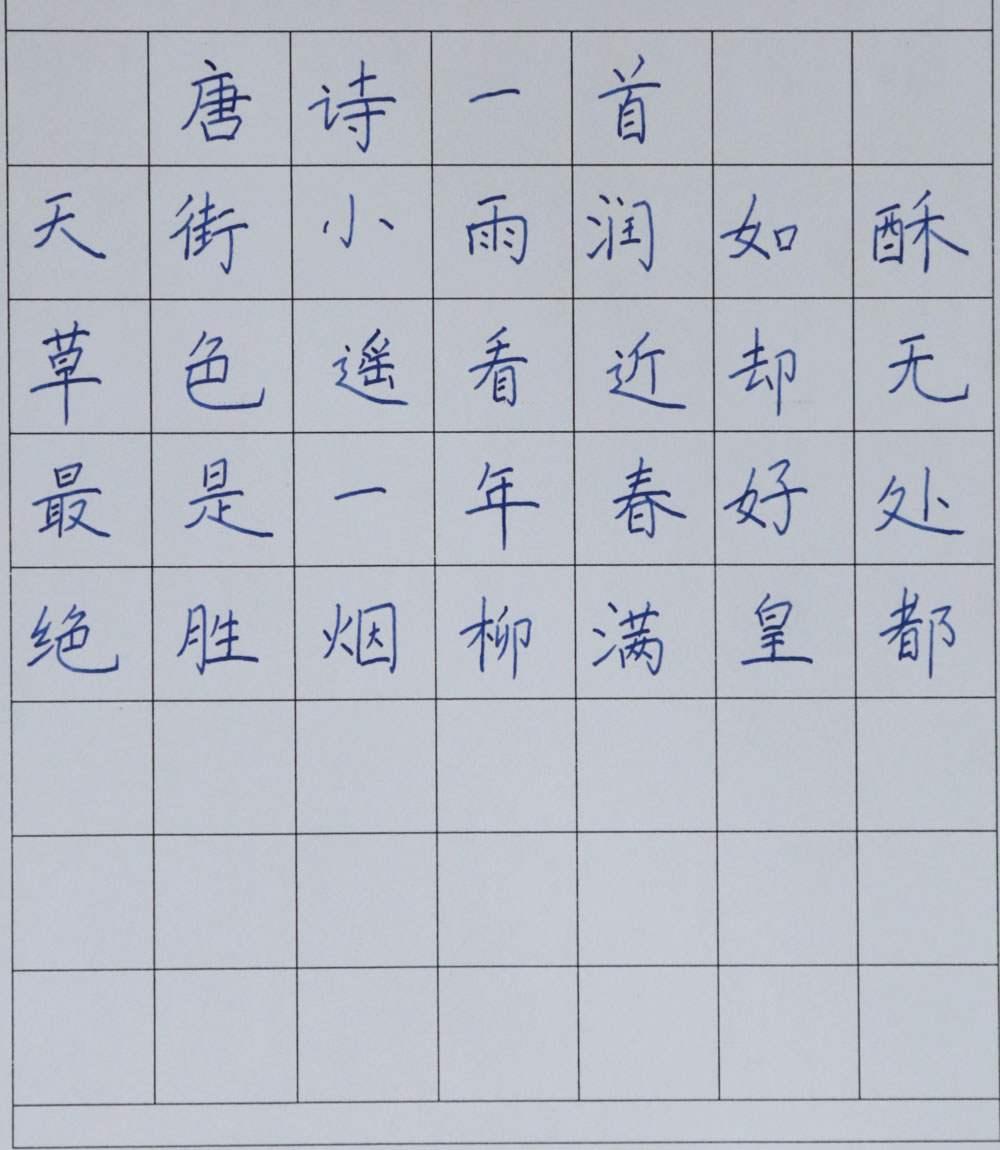 唐诗一首
天街小雨润如酥
草色遥看近却无
最是一年春好处
绝胜烟柳满皇都